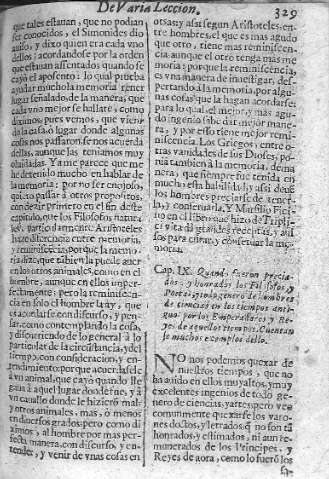 De Varia Leccion.
329
que tales estauan, que no podian
ser conocidos, el Simonides dio
auiso, y dixo quien era cada vno
dellos; acordandose por la orden
que estauan assentados quando se
cayò el aposento: lo qual prueba
ayudar mucho la memoria tener
lugar señalado, de la manera, que
cada vno mejor se hallare; como
diximos, pues vemos, que vien-
do la casa, ò lugar donde algunas
cosas nos passaron, se nos acuerda
dellas, aunque las teniamos muy
oluidadas. Ya me parece que me
he detenido mucho en hablar de
la memoria: por no ser enojoso,
quiero passar à otros propositos,
con dezir primero en el fin deste
capitulo, que los Filosofos natura-
les, particularmente Aristoteles
haze diferencia entre memoria,
y reminiscencia: porque la memo-
ria dize, que tãbien la puede auer
en los otros animales, como en el
hombre, aunque en ellos imper-
fectamente: pero la reminiscen-
cia en solo el hombre la ay, que
es acordarse con discurso, y pen-
sar, como contemplando la cosa,
y discurriendo de lo general à lo
particular de la circunstancia, y del
tiempo, con consideracion, y en-
tendimiento: por que acuerdasele à
vn animal, que cayò quando lle-
ga à aquel lugar donde fue, y à
vn cauallo donde le hizierõ mal:
y otros animales, mas, ò menos
en diuersos grados: pero como di
ximos, al hombre por mas per-
fecta manera, con discurso, y en-
tender, y venir de vnas cosas en
otras: y assi segun Aristoteles, en-
tre hombres, el que es mas agudo
que otro, tiene mas reminiscen-
cia: aunque el otro tenga mas me
moria; porque la reminiscencia
es vna manera de inuestigar, des-
pertando à la memoria, por algu-
nas cosas que la hagan acordarse:
para lo qual el mejor, y mas agu-
do ingenio sabe dar mejor mane-
ra, y por esso tiene mejor remi-
niscencia. Los Griegos, entre o-
tras vanidades de sus Dioses, po-
nian tambien à la memoria, de ma
nera, que siempre fue tenida en
mucho esta habilidad, y assi deuē
los hombres preciarse de tener-
la, y conseruarla. Y Marsilio Ficino
en el libro que hizo de Tripli-
ci vita dà grandes recetas, y aui-
sos para criar, y conseruar la me-
moria.
Cap. IX. Quanto fueron precia-
dos, y honrados los Filosofos, y
Poetas, y otro genero de hombres
de ciencias en los tiempos anti-
guos por los Emperadores, y Re-
yes de aquellos tiempos. Cuentan
se muchos exemplos dello.
NO nos podemos quexar de
nuestros tiempos, que no
ha auido en ellos muy altos, y muy
excelentes ingenios de todo ge-
nero de ciencias, y artes: pero veo
comunmente quexarse los varo-
nes doctos, y letrados, q̃ no son tã
honrados, y estimados, ni aun re-
munerados de los Principes, y
Reyes de aora, como lo fuerõ los
sa-